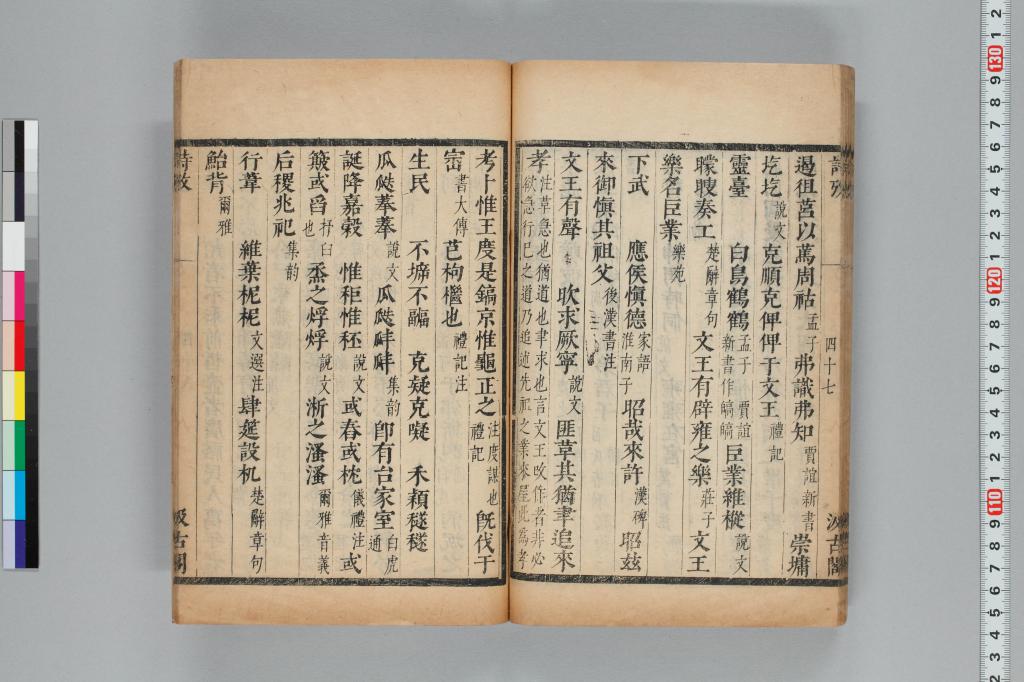 詩攷 四十七 汲古閣
遏徂莒以萬周祜孟子弗識弗知賈誼新書崇墉
圪圪說文克順克俾俾于文王禮記
靈臺 白鳥鶴鶴孟子賈誼新書作皜皜巨業維樅說文
矇瞍奏工楚辭章句文王有辟雍之樂莊子文王
樂名巨業樂苑
下武 應侯慎德家語淮南子昭哉來許漢碑昭兹
來御慎其祖父後漢書注
文王有聲 欥求厥寧說文匪革其猶聿追來
孝注革急也猶道也聿求也言文王改作者非必欲急行己之道乃追述先祖之業來居此為孝
考卜惟王度是鎬京惟龜正之注度謀也禮記既伐于
密書大傳芑枸檵也禮記注
生民 不坼不疈 克疑克嶷 禾穎穟穟
瓜瓞菶菶說文瓜瓞唪唪集韵卽有台家室白虎通
誕降嘉穀 惟秬惟秠說文或舂或枕儀禮注或
簸或舀抒臼也烝之烰烰說文淅之溞溞爾雅音義
后稷兆祀集韵
行葦 維葉柅柅文選注肆筵設机楚辭章句
鮐背爾雅
詩攷 汲古閣